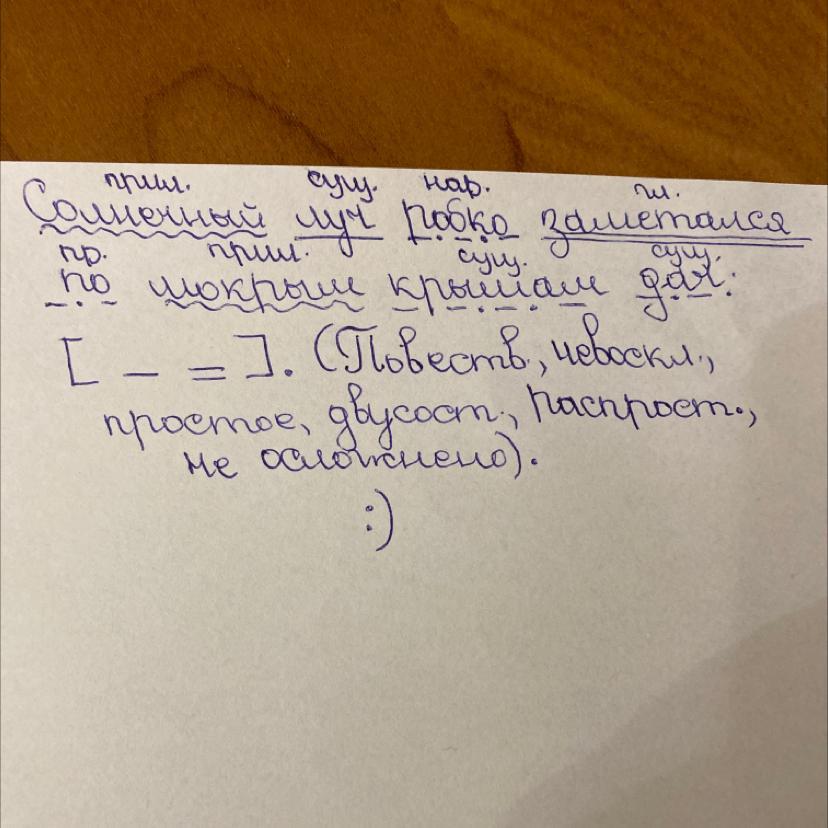 прил. сущ. нар. гл.
Солнечный луч робко заметался
пр. прил. сущ. сущ.
по мокрым крышам дач.
[ — = ]. (Повеств., невоскл.,
простое, двусост., распрост.,
не осложнено).
:)